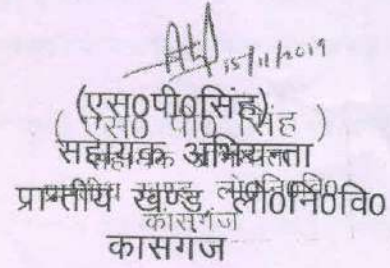 15/11/2019
(एस0पी0सिंह)
( एस0 पी0 सिंह )
सहायक अभियन्ता
प्रान्तीय खण्ड, लो0नि0वि0
कासगंज
कासगंज